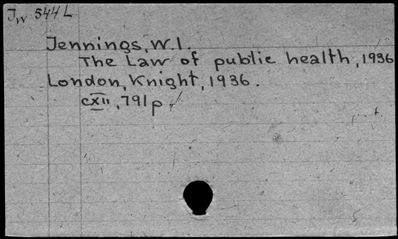 Jn 544L
Jennings, W.I.
The Law of public health, 1936
London, Knight, 1936.
cxii, 791p